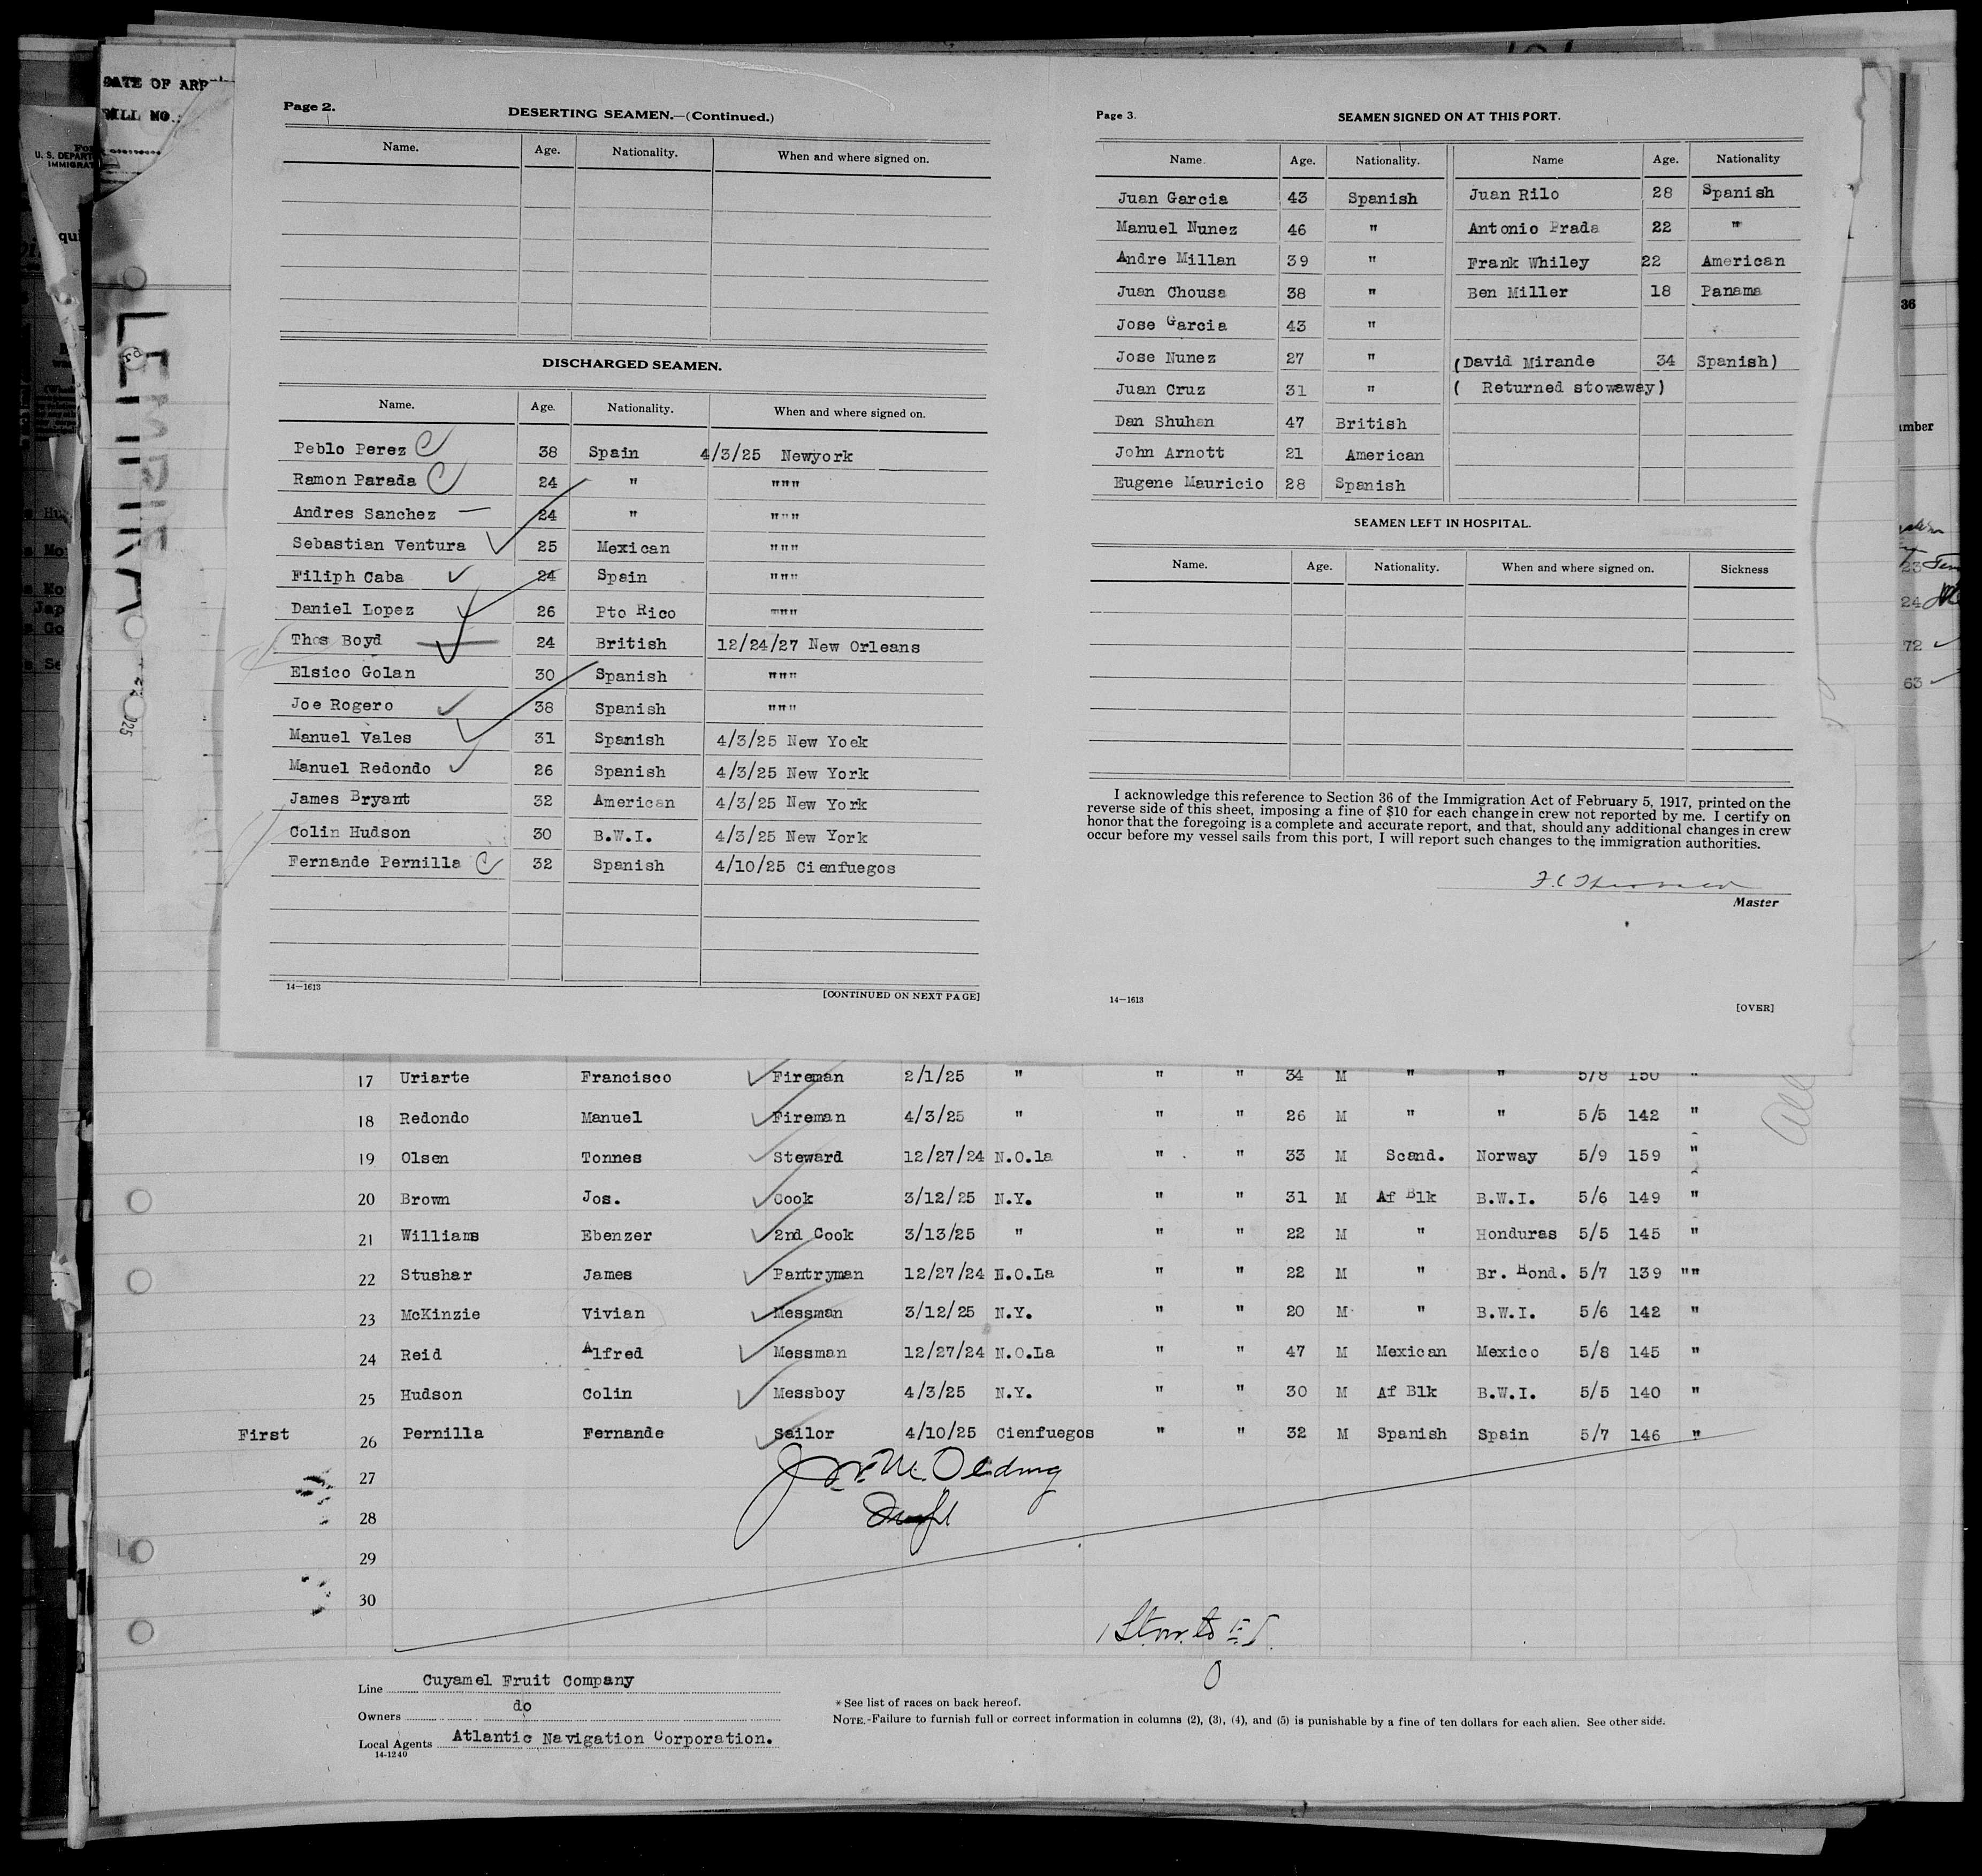 DATE OF ARR
U. S. DEPART
IMMIGRAT
Page 2.
DESERTING SEAMEN.—(Continued.)
Name. Age. Nationality. When and where signed on.
DISCHARGED SEAMEN.
Name. Age. Nationality. When and where signed on.
Peblo Perez 38 Spain 4/3/25 Newyork
Ramon Parada 24 " """
Andres Sanchez 24 " """
Sebastian Ventura 25 Mexican """
Filiph Caba 24 Spain """
Daniel Lopez 26 Pto Rico """
Thos Boyd 24 British 12/24/27 New Orleans
Elsico Golan 30 Spanish """
Joe Rogero 38 Spanish """
Manuel Vales 31 Spanish 4/3/25 New Yoek
Manuel Redondo 26 Spanish 4/3/25 New York
James Bryant 32 American 4/3/25 New York
Colin Hudson 30 B.W.I. 4/3/25 New York
Fernande Pernilla 32 Spanish 4/10/25 Cienfuegos
14—1613
[CONTINUED ON NEXT PAGE]
Page 3.
SEAMEN SIGNED ON AT THIS PORT.
Name. Age. Nationality. Name Age. Nationality
Juan Garcia 43 Spanish Juan Rilo 28 Spanish
Manuel Nunez 46 " Antonio Prada 22 "
Andre Millan 39 " Frank Whiley 22 American
Juan Chousa 38 " Ben Miller 18 Panama
Jose Garcia 43 "
Jose Nunez 27 " (David Mirande 34 Spanish)
Juan Cruz 31 " ( Returned stowaway)
Dan Shuhan 47 British
John Arnott 21 American
Eugene Mauricio 28 Spanish
SEAMEN LEFT IN HOSPITAL.
Name. Age. Nationality. When and where signed on. Sickness
I acknowledge this reference to Section 36 of the Immigration Act of February 5, 1917, printed on the
reverse side of this sheet, imposing a fine of $10 for each change in crew not reported by me. I certify on
honor that the foregoing is a complete and accurate report, and that, should any additional changes in crew
occur before my vessel sails from this port, I will report such changes to the immigration authorities.
Master
14—1613
[OVER]
17 Uriarte Francisco Fireman 2/1/25 " " " 34 M " " 5/8 150 "
18 Redondo Manuel Fireman 4/3/25 " " " 26 M " " 5/5 142 "
19 Olsen Tonnes Steward 12/27/24 N.O.la " " 33 M Scand. Norway 5/9 159 "
20 Brown Jos. Cook 3/12/25 N.Y. " " 31 M Af Blk B.W.I. 5/6 149 "
21 Williams Ebenzer 2nd Cook 3/13/25 " " " 22 M " Honduras 5/5 145 "
22 Stushar James Pantryman 12/27/24 N.O.La " " 22 M " Br. Hond. 5/7 139 ""
23 McKinzie Vivian Messman 3/12/25 N.Y. " " 20 M " B.W.I. 5/6 142 "
24 Reid Alfred Messman 12/27/24 N.O.La " " 47 M Mexican Mexico 5/8 145 "
25 Hudson Colin Messboy 4/3/25 N.Y. " " 30 M Af Blk B.W.I. 5/5 140 "
First 26 Pernilla Fernande Sailor 4/10/25 Cienfuegos " " 32 M Spanish Spain 5/7 146 "
27
28
29
30
Line Cuyamel Fruit Company
Owners do
Local Agents Atlantic Navigation Corporation.
14-1240
* See list of races on back hereof.
NOTE.-Failure to furnish full or correct information in columns (2), (3), (4), and (5) is punishable by a fine of ten dollars for each alien. See other side.